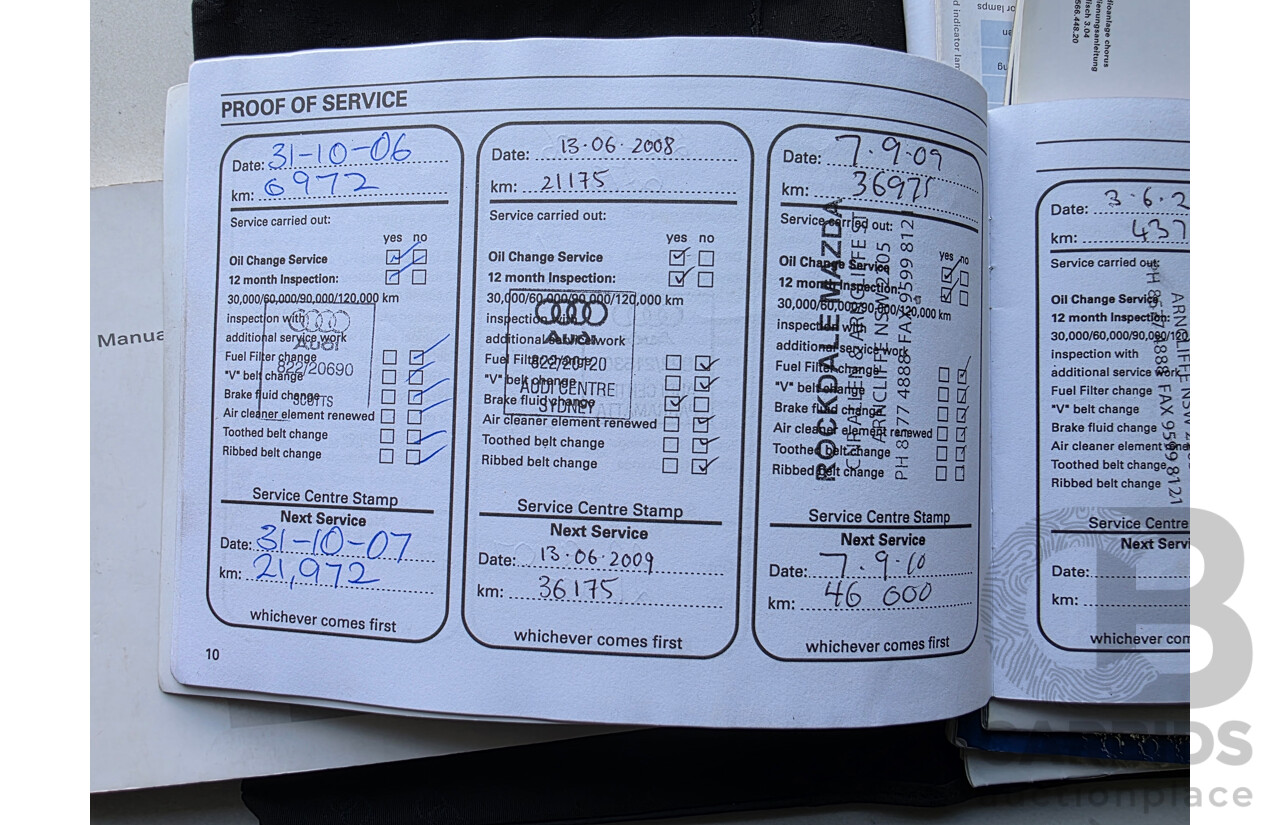 PROOF OF SERVICE
Date: 31-10-06
km: 6972
Service carried out:
yes no
Oil Change Service
12 month Inspection:
30,000/60,000/90,000/120,000 km
inspection with
additional service work
Fuel Filter change
"V" belt change
Brake fluid change
Air cleaner element renewed
Toothed belt change
Ribbed belt change
Audi
822/20690
SCOTTS
Service Centre Stamp
Next Service
Date: 31-10-07
km: 21,972
whichever comes first
10
Date: 13·06·2008
km: 21175
Service carried out:
yes no
Oil Change Service
12 month Inspection:
30,000/60,000/90,000/120,000 km
inspection with
additional service work
Fuel Filter change
"V" belt change
Brake fluid change
Air cleaner element renewed
Toothed belt change
Ribbed belt change
Audi
822/20120
AUDI CENTRE
SYDNEY
Service Centre Stamp
Next Service
Date: 13·06·2009
km: 36175
whichever comes first
Date: 7·9·09
km: 36971
Service carried out:
yes no
Oil Change Service
12 month Inspection:
30,000/60,000/90,000/120,000 km
inspection with
additional service work
Fuel Filter change
"V" belt change
Brake fluid change
Air cleaner element renewed
Toothed belt change
Ribbed belt change
ROCKDALE MAZDA
ARNCLIFFE NSW 2205
PH 8577 4888 FAX 9599 8121
Service Centre Stamp
Next Service
Date: 7·9·10
km: 46 000
whichever comes first
Date: 3·6·2
km: 437
Service carried out:
Oil Change Service
12 month Inspection:
30,000/60,000/90,000/120
inspection with
additional service work
Fuel Filter change
"V" belt change
Brake fluid change
Air cleaner element rene
Toothed belt change
Ribbed belt change
ARNCLIFFE NSW
PH 8577 4888 FAX 9599 8121
Service Centre
Next Servi
Date:
km:
whichever com
Manua
or lamps
d indicator lam
dioanlage chorus
dienungsanleitung
tisch 3.04
566.448.20
CARBIDS
auctionplace